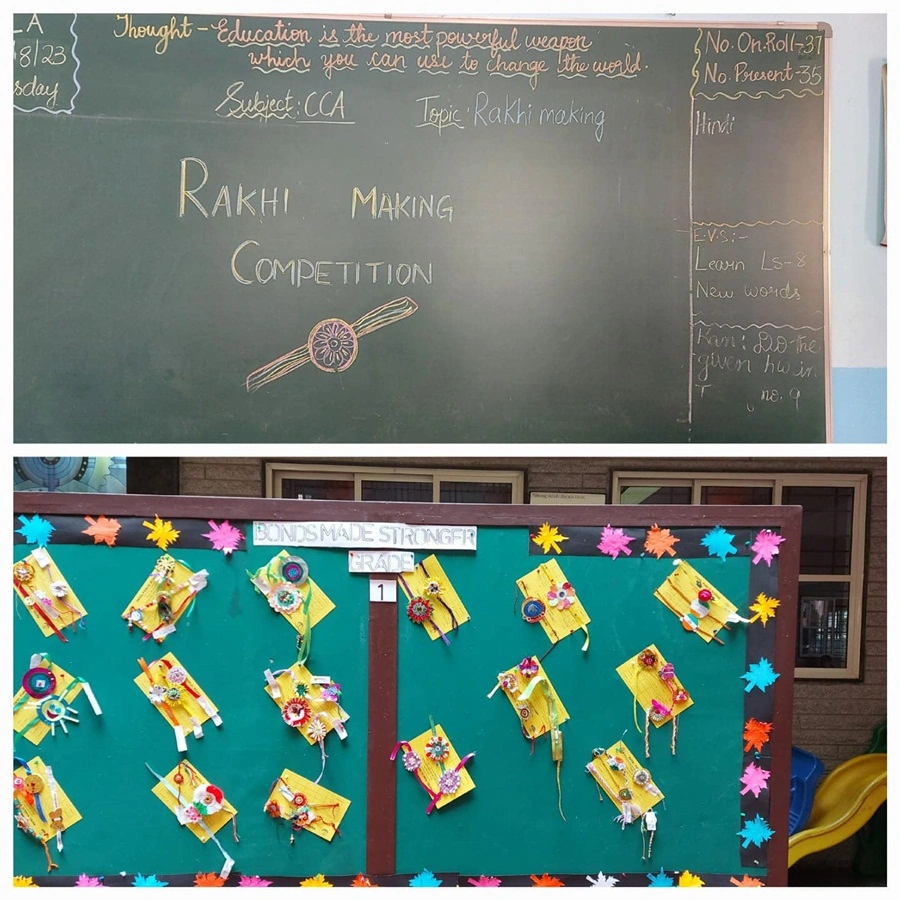 A
8/23
sday
Thought - Education is the most powerful weapon
which you can use to change the world.
Subject: CCA Topic: Rakhi making
RAKHI MAKING
COMPETITION
No. On Roll-37
No. Present-35
Hindi
E.V.S:-
Learn Ls-8
New words
Kan: Do the
given hw in
T no. 9
BONDS MADE STRONGER
GRADE
1